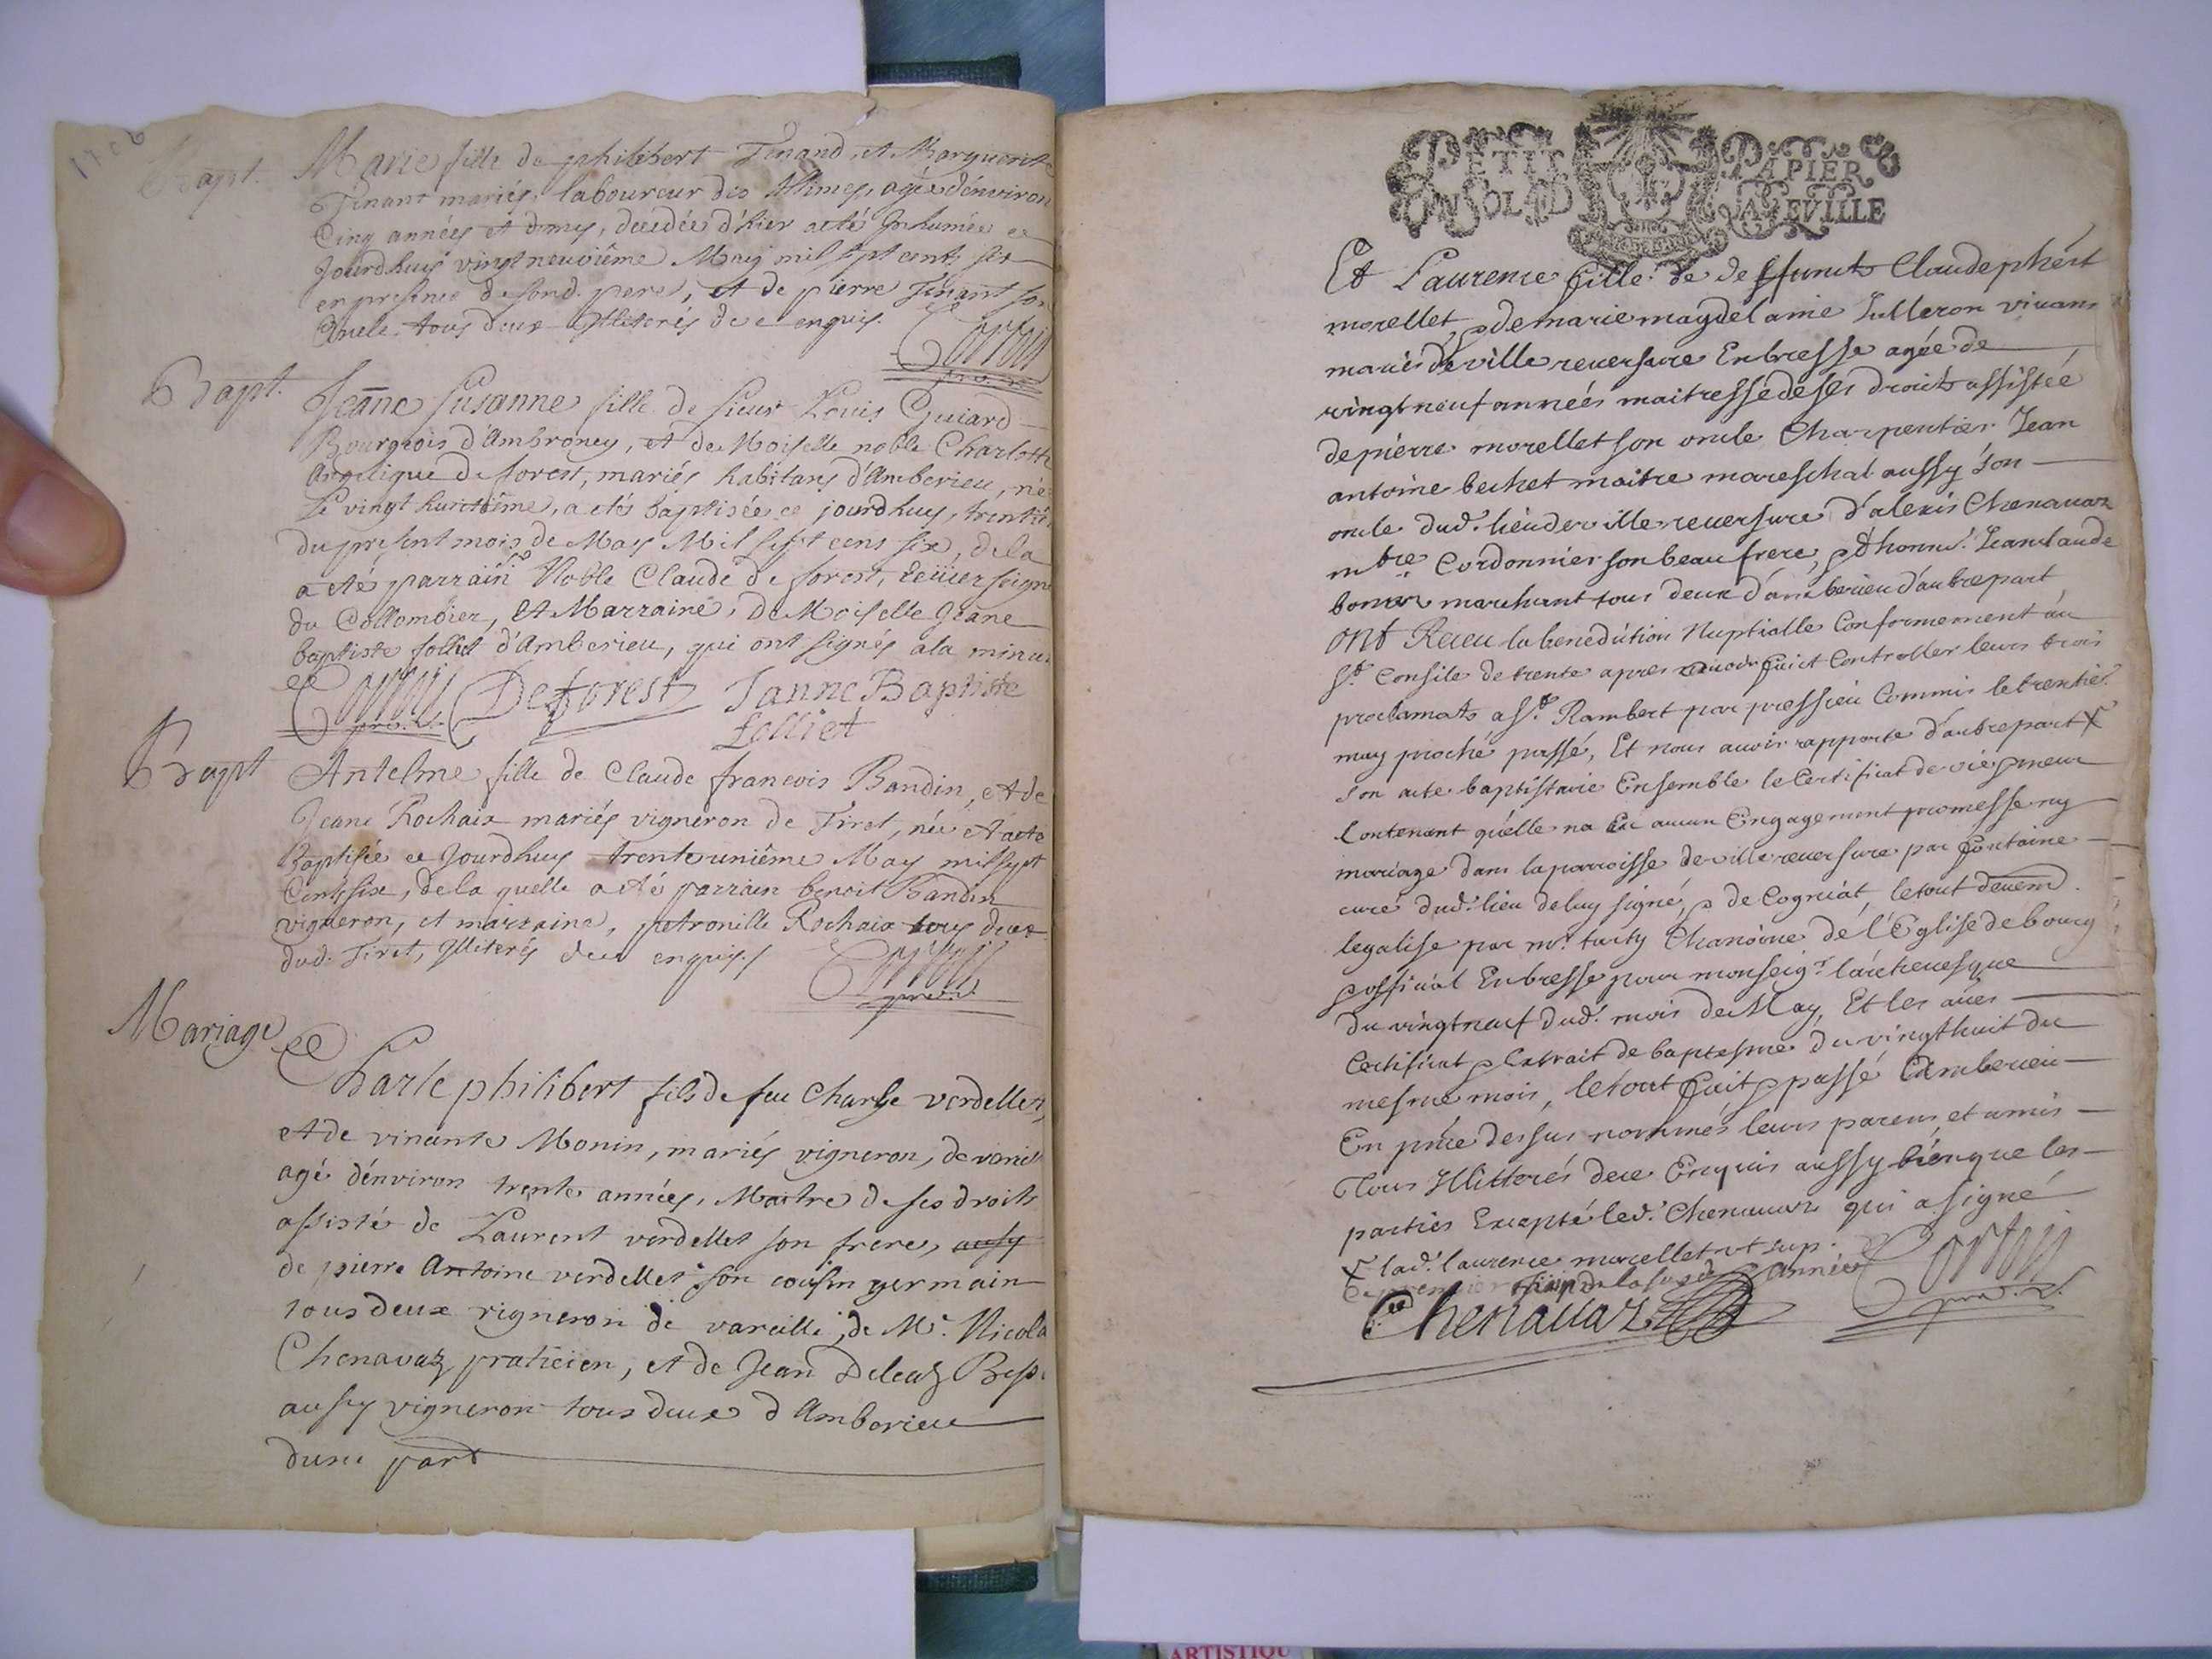 1706
Bapt.
Marie fille de philibert Tenand, et Marguerite
Tenant mariés, laboureur des Allimes, agée d'environ
Cinq années et demy, décédée d'hier a eté Inhumée ce
Jourdhuy vingt neuvième May mil sept cents six
en presence de sond. pere, et de pierre Tenant son
oncle tous deux illiterés de ce enquis.
Bapt.
Jeane Susanne fille de sieur Louis Guiard
Bourgeois d'Ambroney, et de Moiselle noble Charlotte
Angelique de forest, mariés habitans d'Amberieu, née
Le vingt huitième, a etés baptisée ce jourdhuy, trentiè
du present mois de May Mil sept cens six, de la
a eté parrain Noble Claude de forest, Ecüier seigne
du Collombier, et Marraine, de Moiselle Jeane
baptiste folliet d'Amberieu, qui ont signés a la minu
Deforest Janne Baptiste
folliet
Bapt
Antelme fille de Claude francois Bandin, et de
Jeane Rochaix mariés vigneron de Tiret, née et a eté
Baptisée ce Jourdhuy trente unième May mil sept
Cents six, de la quelle a eté parrain benoit Bandin
vigneron, et marraine, petronille Rochaix tous deux
dud. Tiret, illiterés de ce enquis /
Mariage
Charle philibert fils de feu Charle verdellet,
et de vivante Monin, mariés vigneron, de vareill
agé d'environ trente années, Maitre de ses droits
assisté de Laurent verdellet son frere, aussy
de pierre Antoine verdellet son cousin germain
tous deux vigneron de vareille, de Mr. Nicola
Chenavaz praticien, et de Jean Deleaz
aussy vigneron tous deux d'Amberieu
dune part
PETIT PAPIER
UN SOL 4 D LA FEVILLE
Et Laurence fille de deffuncts Claude phért
morellet, & de marie magdelaine Julleron vivans
mariés de ville reversure En bresse agée de
vingt neuf années maitresse de ses droits assistée
de pierre morellet son oncle Charpentier Jean
antoine bechet maitre mareschal aussy son
oncle dud. lieu de ville reversure d'alexis Chenavaz
mbre Cordonnier son beau frere, & d'honne. Jean claude
marchant tous deux d'amberieu d'autre part
ont Receu la benediction Nuptialle Conformement au
St. Consile de trente apres avoir faict Controller leurs trois
proclamats a St. Rambert par pressieu Commis le trentie.
may proche passé, Et nous avoir rapporté d'autre part X
son acte baptistaire Ensemble le Certificat de vie & meur
Contenant qu'elle na Eu aucun Engagement promesse ny
mariage dans la parroisse de ville reversure par fontaine
curé dud. lieu de luy signé, & de Cogniat, le tout
legalise par mr. Chanoine de l'Eglise de bourg
& official En bresse pour monseigr. l'archevesque
du vingt neuf dud. mois de May, Et les
Certificat & Extrait de baptesme du vingt huit du
mesme mois, le tout fait & passé a Amberieu
En pñce dessus nommés leurs parens, et amis
Tous Illitterés de ce Enquis aussy bien que les
parties Excepté led. Chenavaz qui a signé
X lad. laurence morellet ut sup.
Chenavaz
ARTISTIQU